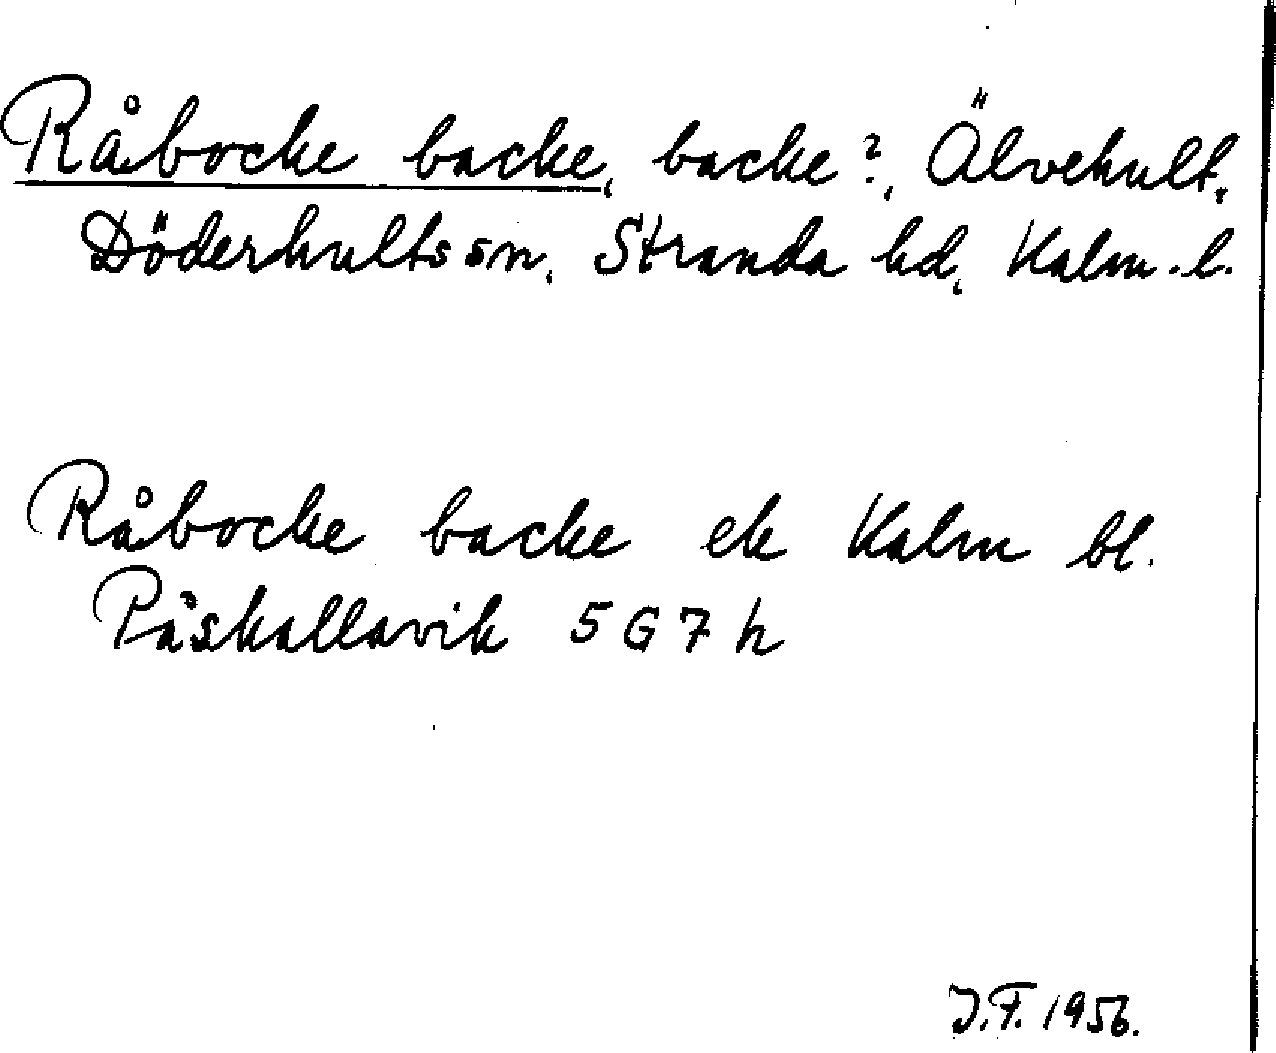 Råbocke backe, backe?, Älvehult,
Döderhults sn, Stranda hd, Kalm. l.
Råbocke backe ek Kalm bl.
Påskallavik 5 G 7 h
J.F. 1956.